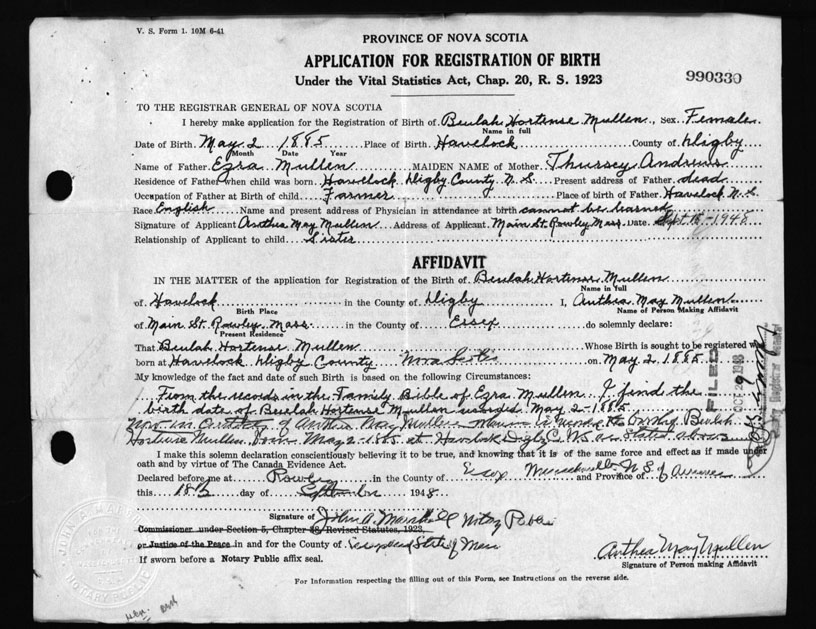 V. S. Form 1. 10M 6-41
PROVINCE OF NOVA SCOTIA
APPLICATION FOR REGISTRATION OF BIRTH
Under the Vital Statistics Act, Chap. 20, R. S. 1923
990330
TO THE REGISTRAR GENERAL OF NOVA SCOTIA
I hereby make application for the Registration of Birth of Beulah Hortense Mullen, Sex Female
Name in full
Date of Birth May 2 1885 Place of Birth Havelock County of Digby
Month Date Year
Name of Father Ezra Mullen MAIDEN NAME of Mother Thursey Andrews
Residence of Father when child was born Havelock Digby County N. S. Present address of Father dead
Occupation of Father at Birth of child Farmer Place of birth of Father Havelock N. S.
Race English Name and present address of Physician in attendance at birth cannot be learned
Signature of Applicant Anthea May Mullen Address of Applicant Main St. Rowley Mass. Date Sept 18-1948
Relationship of Applicant to child Sister
AFFIDAVIT
IN THE MATTER of the application for Registration of the Birth of Beulah Hortense Mullen
Name in full
of Havelock in the County of Digby I, Anthea May Mullen
Birth Place Name of Person Making Affidavit
of Main St. Rowley Mass. in the County of Essex do solemnly declare:
Present Residence
That Beulah Hortense Mullen Whose Birth is sought to be registered was
born at Havelock Digby County Nova Scotia on May 2 1885
My knowledge of the fact and date of such Birth is based on the following Circumstances:
From the records in the Family Bible of Ezra Mullen I find the
birth date of Beulah Hortense Mullen May 2-1885
of Anthea May Mullen Beulah
Hortense Mullen born May 2-1885 at Havelock Digby Co. N.S. as stated above
I make this solemn declaration conscientiously believing it to be true, and knowing that it is of the same force and effect as if made under
oath and by virtue of The Canada Evidence Act.
Declared before me at Rowley in the County of Essex Massachusetts and Province of U.S. of America
this 18th day of September 1948
Signature of John A. Marshall Notary Public
Commissioner under Section 5, Chapter 38, Revised Statutes, 1923
or Justice of the Peace in and for the County of Essex and State of Mass
If sworn before a Notary Public affix seal.
Anthea May Mullen
Signature of Person making Affidavit
For Information respecting the filling out of this Form, see Instructions on the reverse side.
FILED
OCT 29 1948
NOTARY